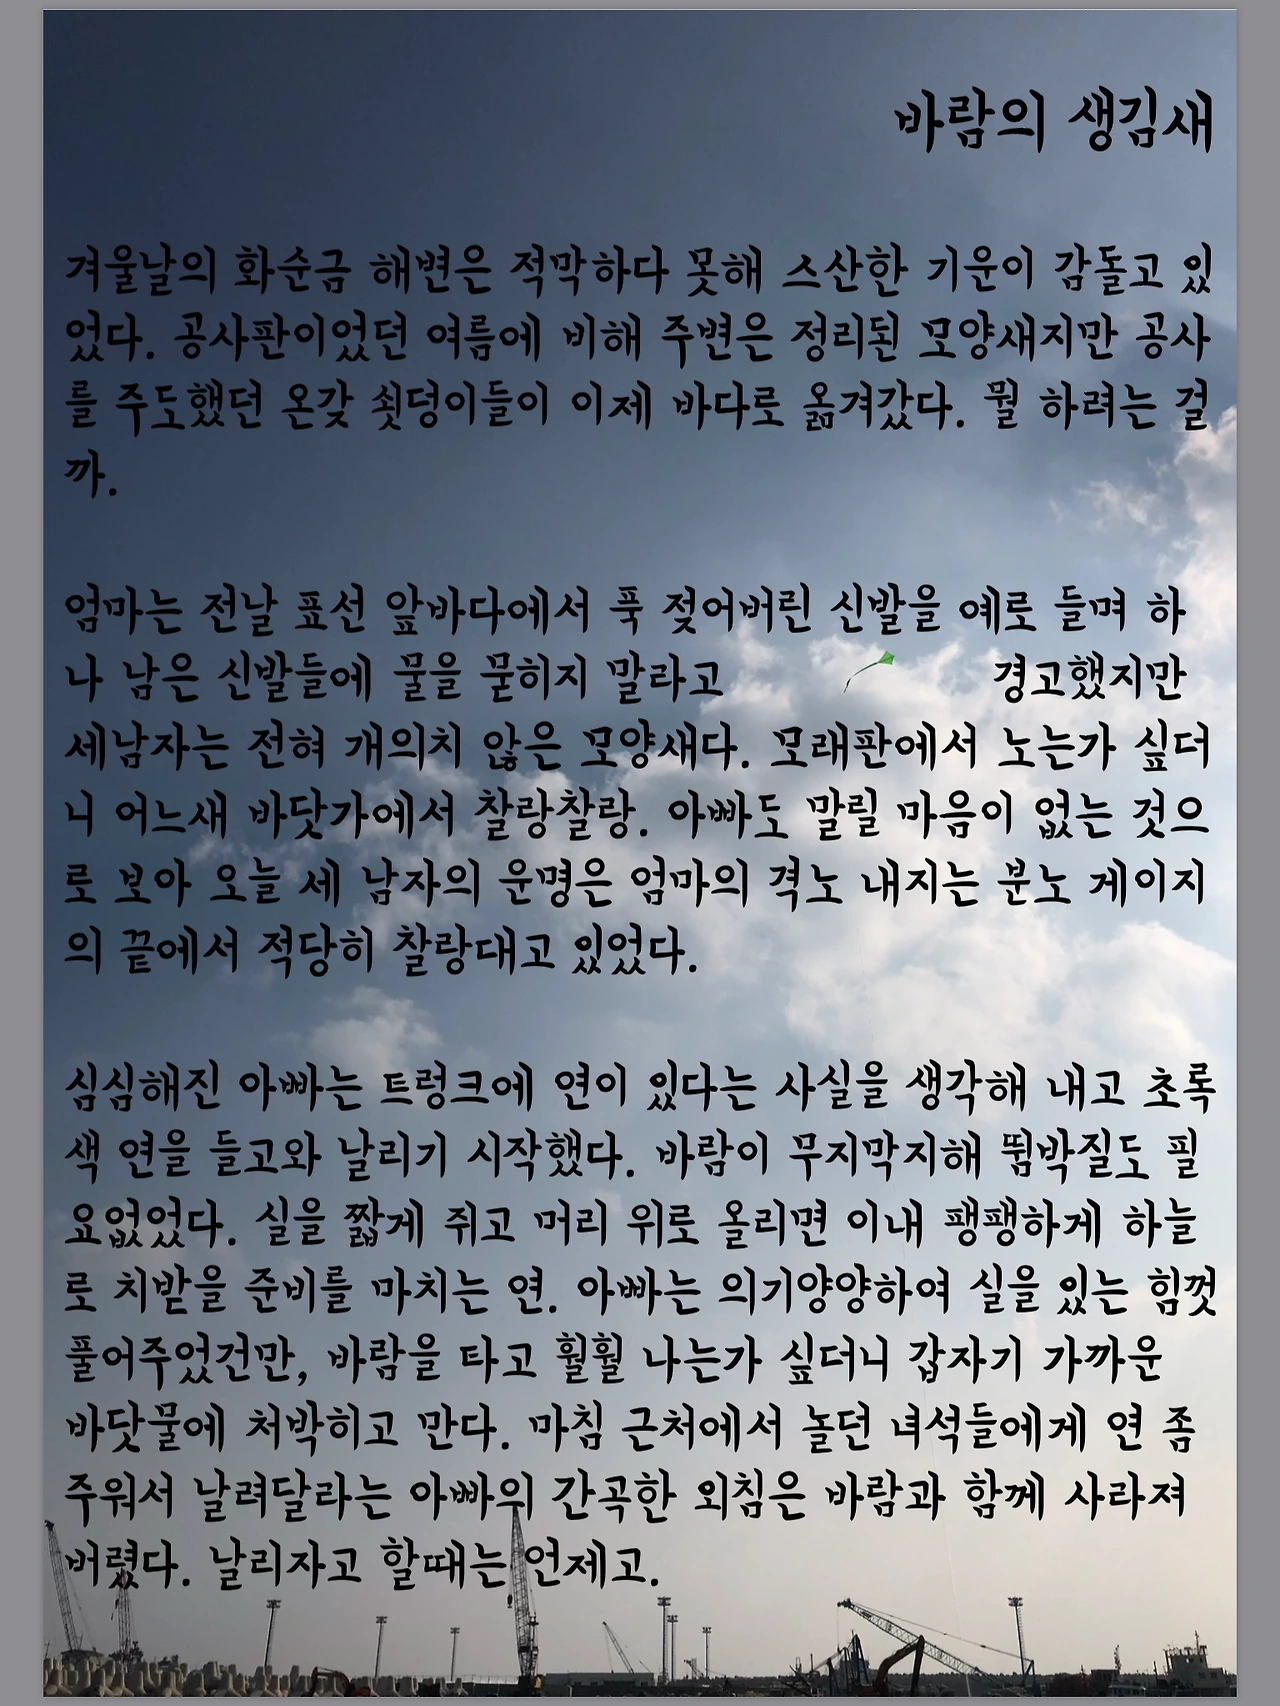 바람의 생김새
겨울날의 화순금 해변은 적막하다 못해 스산한 기운이 감돌고 있
었다. 공사판이었던 여름에 비해 주변은 정리된 모양새지만 공사
를 주도했던 온갖 쇳덩이들이 이제 바다로 옮겨갔다. 뭘 하려는 걸
까.
엄마는 전날 표선 앞바다에서 푹 젖어버린 신발을 예로 들며 하
나 남은 신발들에 물을 묻히지 말라고 경고했지만
세남자는 전혀 개의치 않은 모양새다. 모래판에서 노는가 싶더
니 어느새 바닷가에서 찰랑찰랑. 아빠도 말릴 마음이 없는 것으
로 보아 오늘 세 남자의 운명은 엄마의 격노 내지는 분노 게이지
의 끝에서 적당히 찰랑대고 있었다.
심심해진 아빠는 트렁크에 연이 있다는 사실을 생각해 내고 초록
색 연을 들고와 날리기 시작했다. 바람이 무지막지해 뜀박질도 필
요없었다. 실을 짧게 쥐고 머리 위로 올리면 이내 팽팽하게 하늘
로 치받을 준비를 마치는 연. 아빠는 의기양양하여 실을 있는 힘껏
풀어주었건만, 바람을 타고 훨훨 나는가 싶더니 갑자기 가까운
바닷물에 처박히고 만다. 마침 근처에서 놀던 녀석들에게 연 좀
주워서 날려달라는 아빠의 간곡한 외침은 바람과 함께 사라져
버렸다. 날리자고 할때는 언제고.